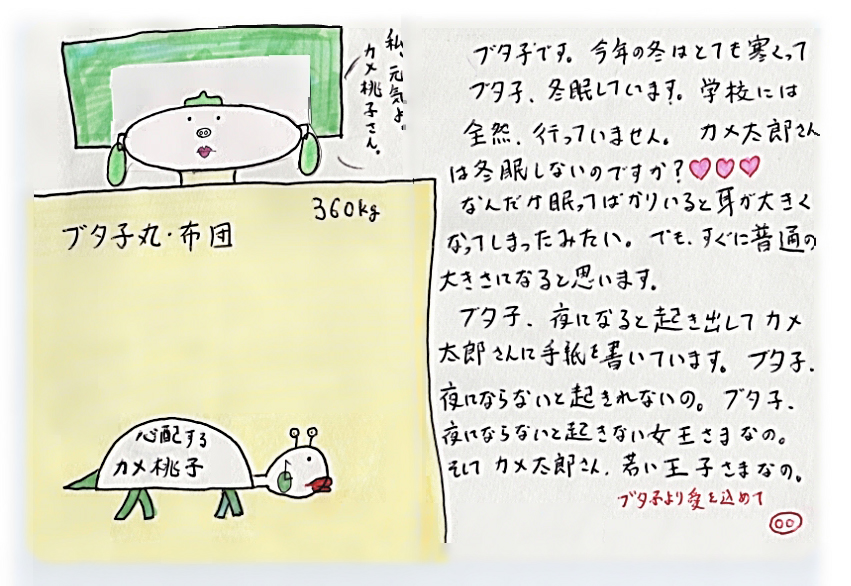 私、元気よ。
カメ桃子さん。
360kg
ブタ子丸・布団
心配する
カメ桃子
ブタ子です。今年の冬はとても寒くって
ブタ子、冬眠しています。学校には
全然、行っていません。カメ太郎さん
は冬眠しないのですか?♡♡♡
なんだか眠ってばかりいると耳が大きく
なってしまったみたい。でも、すぐに普通の
大きさになると思います。
ブタ子、夜になると起き出してカメ
太郎さんに手紙を書いています。ブタ子、
夜にならないと起きれないの。ブタ子、
夜にならないと起きない女王さまなの。
そしてカメ太郎さん、若い王子さまなの。
ブタ子より愛を込めて